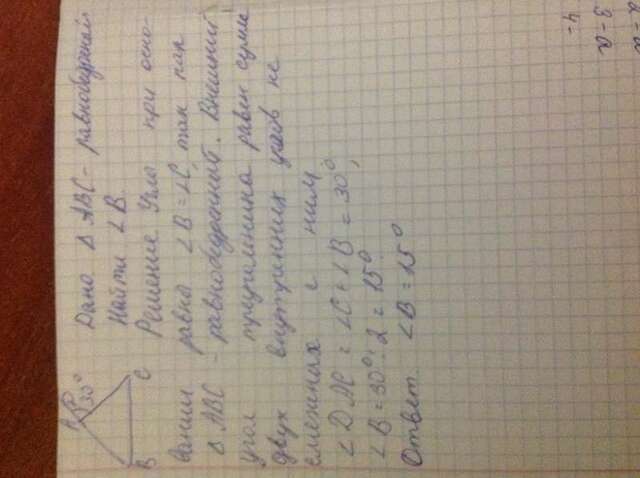 Дано Δ ABC - равнобедренный
Найти ∠B.
Решение Углы при осно-
вании равно ∠B = ∠C, так как
Δ ABC - равнобедренный. Внешний
угол треугольника равен сумме
двух внутренних углов не
смежных с ним
∠DAC = ∠C + ∠B = 30°,
∠B = 30° : 2 = 15°
Ответ ∠B = 15°
A
D
30°
B
C
-4
3-a